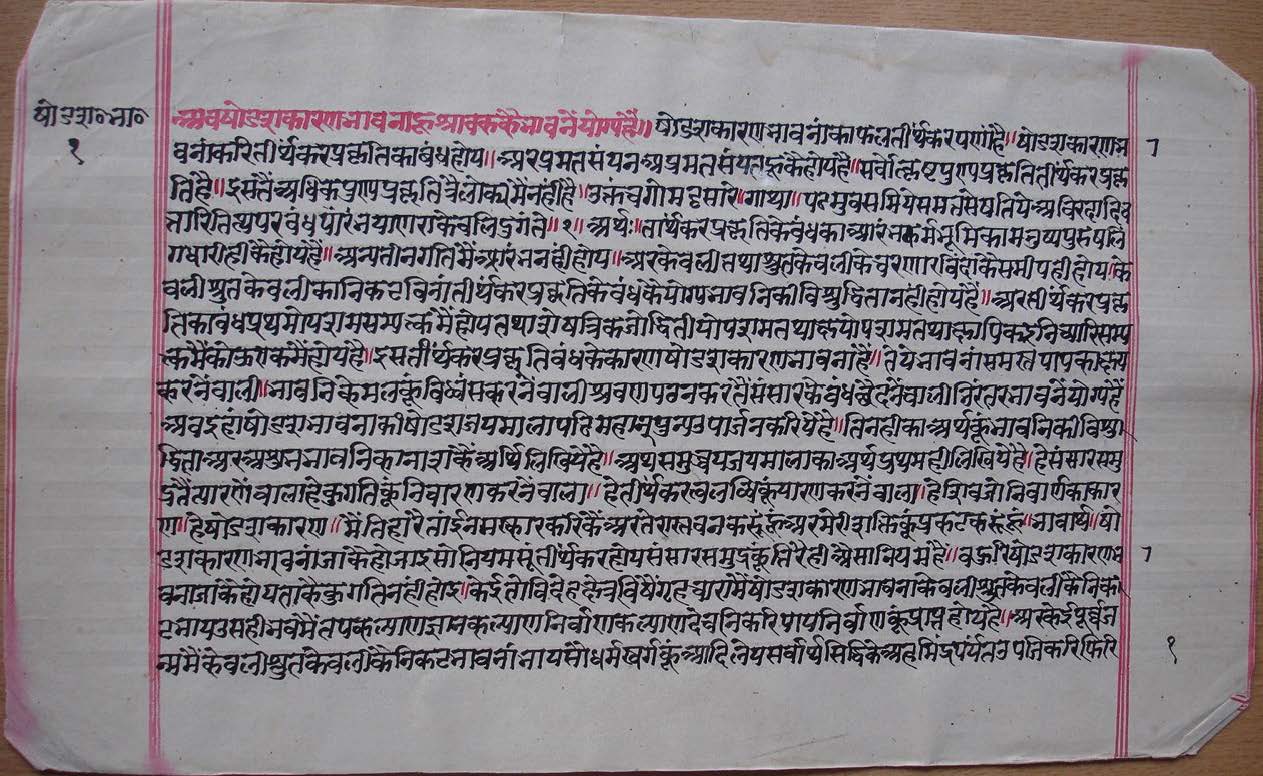 षोडश॰भा॰
१
अब षोडशकारणभावनाहू श्रावककै भावनेंयोग्यहै॥ षोडशकारणभावनांका फल तीर्थंकरपणांहै॥ षोडशकारणभा
वनांकरितीर्थंकरप्रकृतिका बंध होय॥ अर प्रमतसंयत अप्रमतसंयतहूकै होयहै॥ सर्वोत्कृष्ट पुण्यप्रकृति तीर्थंकरप्रकृ
तिहै॥ इसतैं अधिक पुण्यप्रकृति त्रैलोक्यमैं नंहीहै॥ उक्तं च गोमट्टसारे॥ गाथा॥ पढमुवसमियेसमतेसेषतिये अविरदादिच
तारि तित्थयरबंधपारंभयाणराकेवलिदुगंते॥१॥ अर्थः॥ तीर्थंकरप्रकृतिके बंधका आरंभ कर्मभूमिका मनुष्य पुरुषलिं
गधारीहीकै होयहै॥ अन्य तीन गतिमैं आरंभ नंही होय॥ अर केवली तथा श्रुतकेवलीके चरणारविंदांके समीपही होय॥ के
वली श्रुतकेवलीका निकट विनां तीर्थंकरप्रकृतिके बंधकै योग्य भावनिकी विशुद्धिता नंही होयहै॥ अर तीर्थंकरप्रकृ
तिका बंध प्रथमोपशमसम्यत्क्वमैं होय तथा शेषत्रिक जो द्वितीयोपशम तथा क्षयोपशम तथा क्षायिक इनि च्यारि सम्य
त्क्वमैंकोऊ एकमैं होयहै॥ इस तीर्थंकरप्रकृतिबंधके कारण षोडशकारणभावनांहै॥ तेये भावनां समस्त पापका क्षय
करनेंवाली॥ भावनिके मलकूं विध्वंस करनेंवाली श्रवण पठन करतैं संसारके बंध छेदनेंवाली निरंतर भावनें योग्यहै
अब इहां षोडशभावनाकी षोडश जयमाला पढि महान् पुन्य उपार्जन करियेहै॥ तिनहीका अर्थकूं भावनिकी विशु
द्धिता अर अशुभभावनिका नाशकै अर्थि लिखियेहै॥ अथ समुच्चयजयमालाका अर्थ प्रथमही लिखियेहै॥ हे संसारसमु
द्रतैं त्यारणेंवाला हे कुगतिकूं निवारण करनेंवाला॥ हे तीर्थंकरत्व लब्धिकूं धारण करनेंवाला॥ हे शिव जो निर्वाणका कार
ण॥ हे षोडशकारण॥ मैं तिहारे तांई नमस्कार करिकैं अर तेरा स्तवन करूंहूं अर मेरी शक्तिकूं प्रकट करूंहूं॥ भावार्थ॥ षो
डशकारणभावनां जाकै हो जाइ सो नियमसूं तीर्थंकर होय संसारसमुद्रकूं तिरैही अैसा नियमहै॥ बहुरि षोडशकारणभा
वना जाकै होय ताकै कुगति नंही होइ॥ केई तो विदेहक्षेत्रविषैं गृहचारामैं षोडशकारणभावना केवली श्रुतकेवलीके निक
ट भाय उसही भवमें तपकल्याण ज्ञानकल्याण निर्वाणकल्याण देवनिकरि पाय निर्वाणकूं प्राप्त होयहै॥ अर केई पूर्वज
न्ममैं केवली श्रुतकेवलीकै निकट भावनां भाय सौधर्मस्वर्गकूं आदि लेय सर्वार्थसिद्धिके अहमिंद्रपर्यंत उपजिकरि फिरि
१